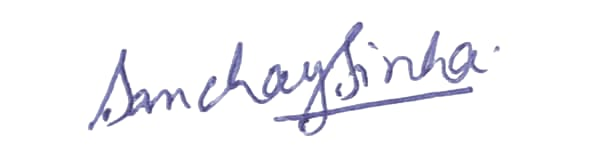 Sanchay Sinha.